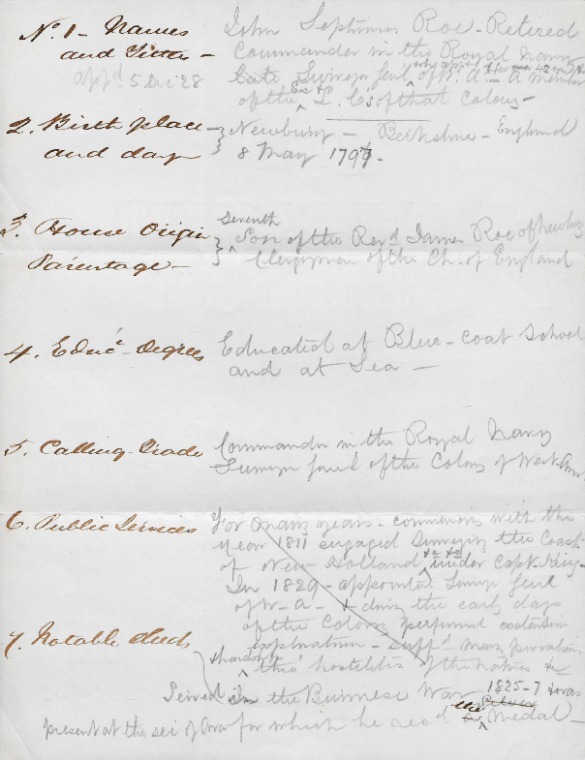 No. 1 - Names John Septimus Roe - Retired
and Titles - Commander in the Royal Navy
appd 5 Dec '28 late Surveyor Genl of W. A. - a member
of the Exe & L. C.s of that Colony -
2. Birth place Newbury - Berkshire - England
and day 8 May 1797 -
3. House Origin Seventh Son of the Revd James Roe of Newbury
Parentage - Clergyman of the Ch. of England
4. Educ - Degrees Educated at Blue-coat School
and at Sea -
5. Calling - Trade Commander in the Royal Navy
Surveyor Genl of the Colony of West. Aus.
6. Public Services For many years - commencing with the
year 1811 engaged surveying the Coast
of New Holland &c &c under Capt King -
In 1829 - appointed Surveyor Genl
of W - A - & during the early days
of the Colony performed extensive
7. Notable deeds exploration - suffd many privations
& hardships thro' hostilities of the natives &c
Served in the Burmese War 1825-7 & was
present at the of Ava for which he recd the Medal -